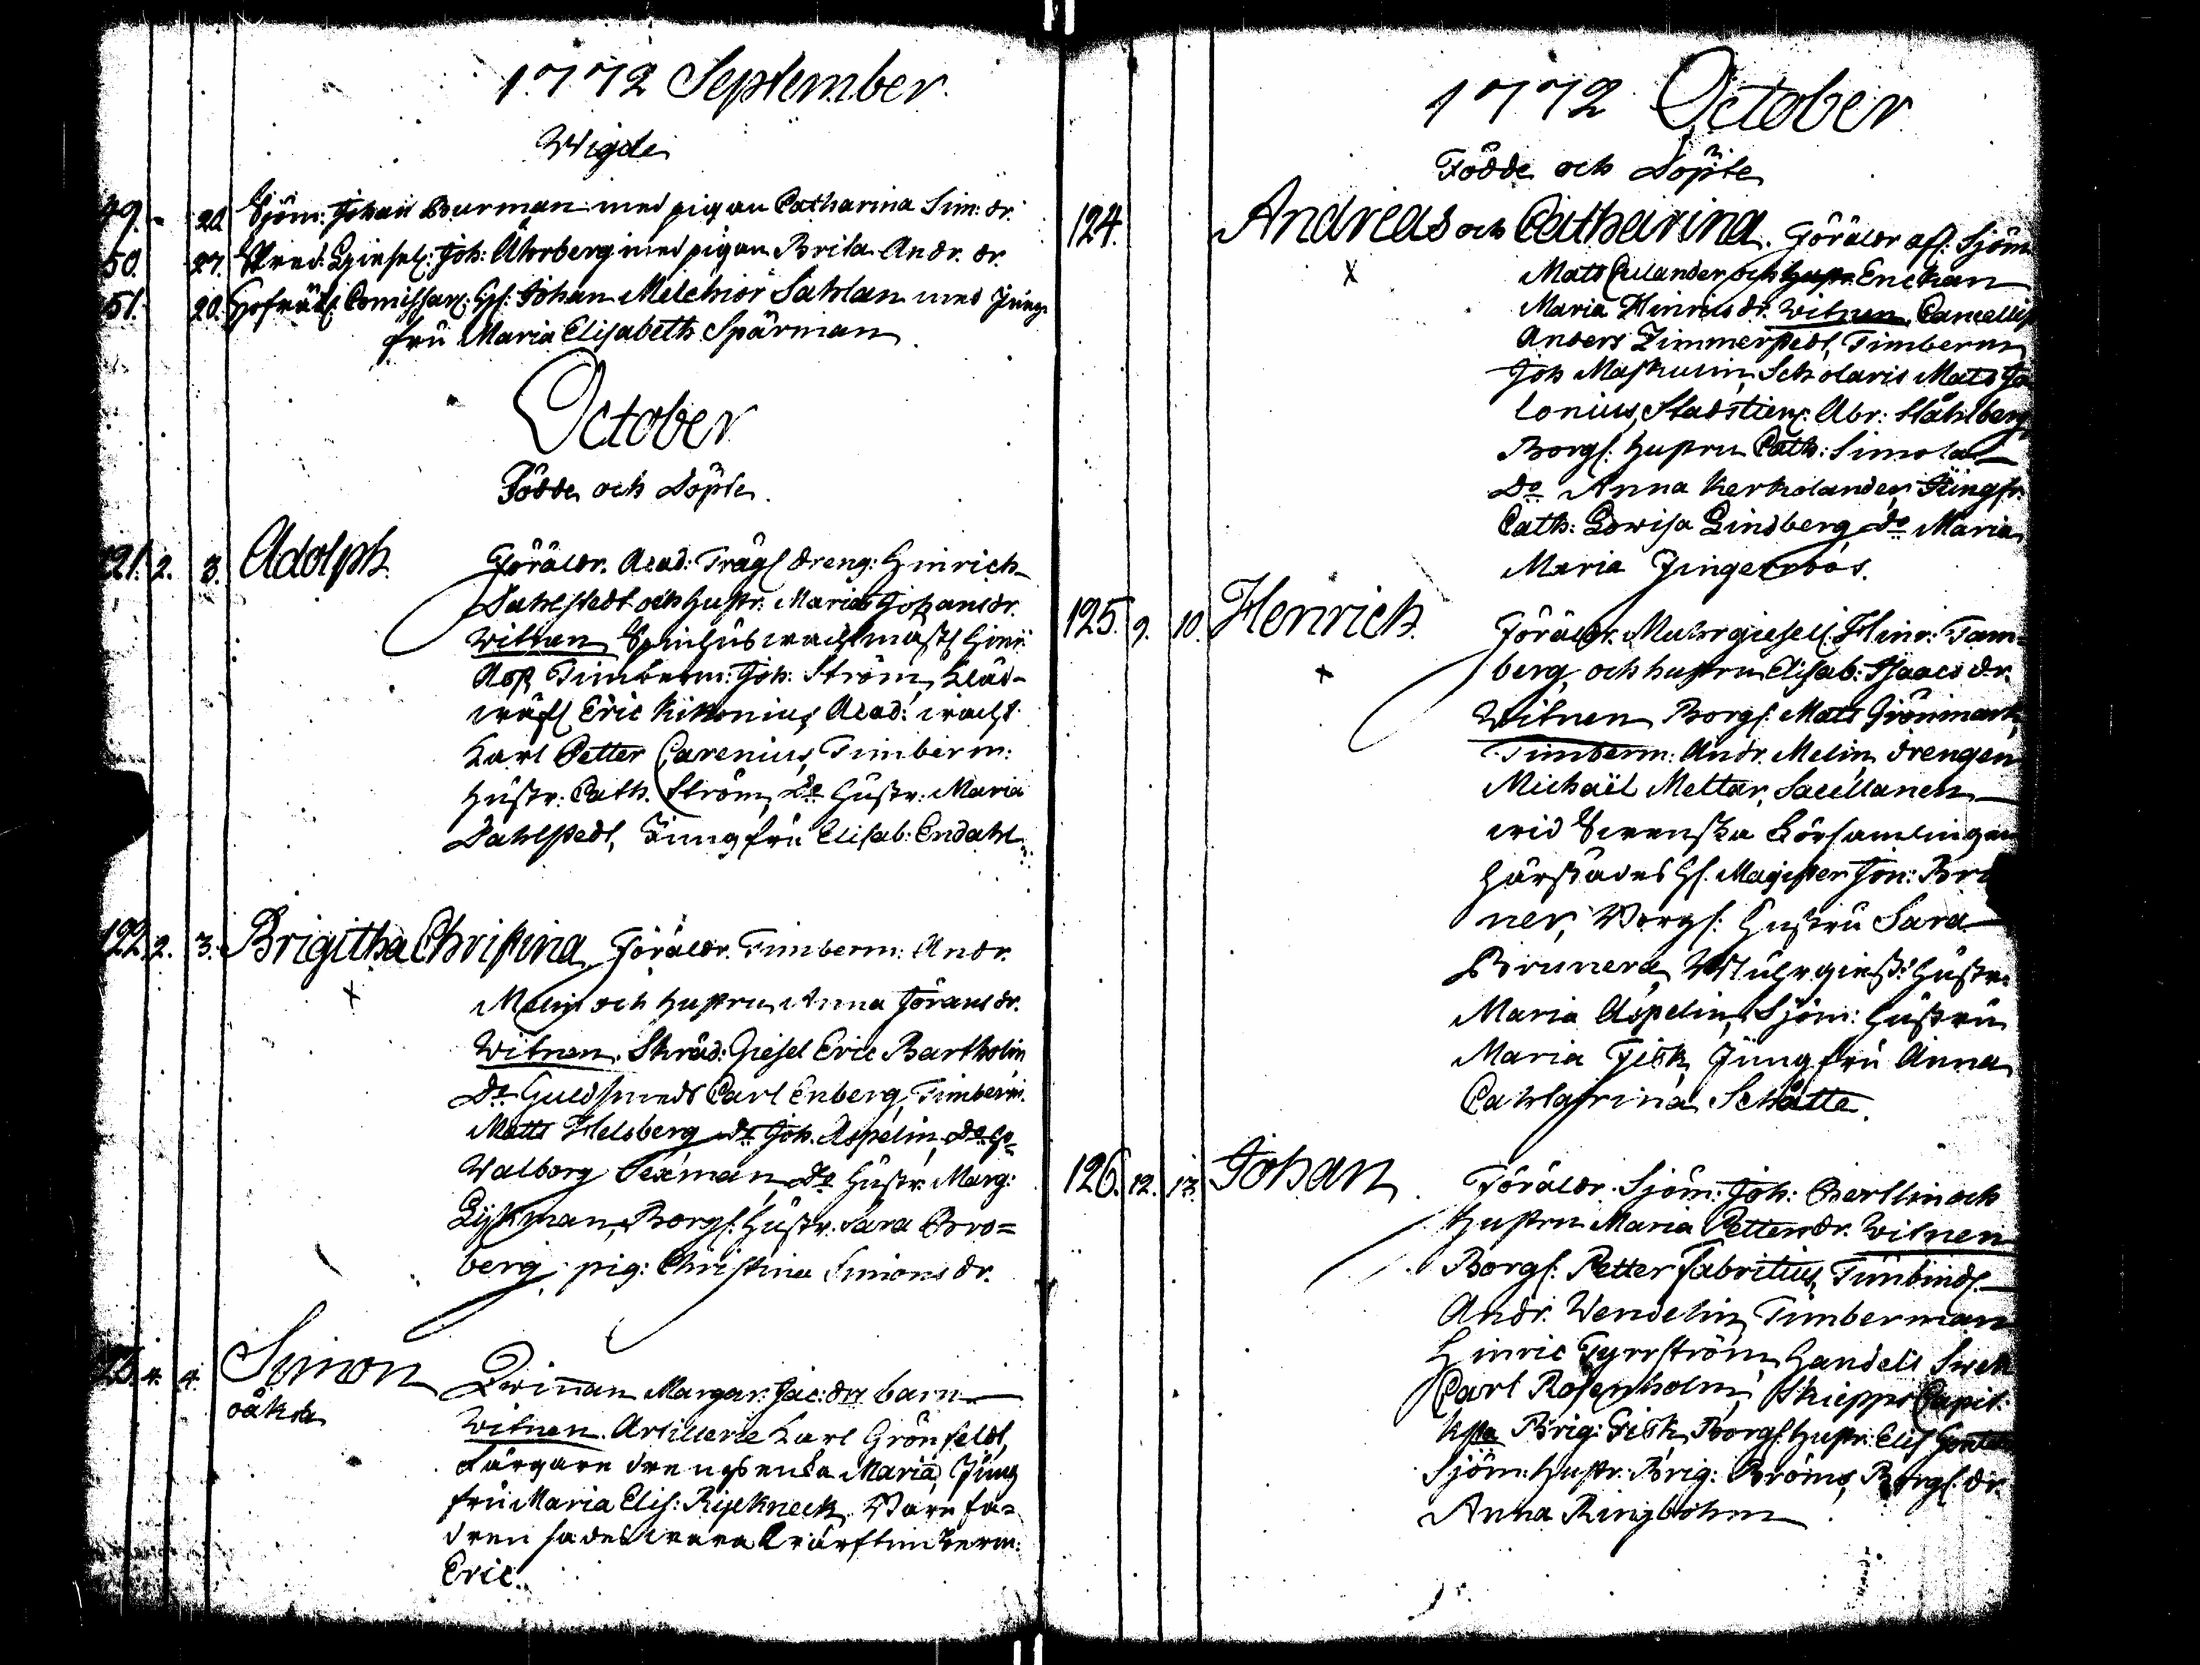 1772 September
Wigde
49. - 20. Sjöm: Johan Burman med pigan Catharina Sim: dr.
50. 27. Joh: Åhrberg med pigan Brita Andr. dr.
51. 20. Hofrätz Comissar: Johan Melchior Sahlan med Jung-
fru Maria Elisabeth Spårman
October
Födde och Döpte.
121. 2. 3. Adolph. Föräldr. Acad: Trägl dreng: Hinrich
Dahlstedt och Hustr. Maria Johansdr.
Witnen Spinhus wachtmast: Hinr:
Asp, Timberm: Joh: Ström, Kläd-
Eric Kikonius, Acad: wacht
Karl Petter Carenius, Timberm:
Hustr: Cath. Ström, Do Hustr: Maria
Dahlstedt, Jungfru Elisab: Endahl
122. 2. 3. Brigitha Christina Föräldr. Timberm: Andr.
Melin och hustru Anna Göransdr.
Witnen. Skräd: Giesel Eric Bartholin
Do Guldsmeds Carl Enberg, Timberm.
Matts Helsberg do Joh. Aspelin, Do
Walborg Sexman, Do Hustr: Marg:
Lijkman, Borgs: Hustr. Sara Bro=
berg, pig: Christina Simonsdr.
4. 4. Simon Qvinnan Margar: Jac: dr barn
oäkta Witnen. Artillerie Karl Grönfeldt,
Färgare drengs enka Maria, Jung
fru Maria Elis: Rijkneck. Barnfa=
dren sades wara Timberm:
Eric.
1772 October
Födde och Döpte
124. Andreas och Catharina. Föräldr afl: Sjöm
Mats Culander och hustr Enckan
Maria Hinrics dr. Witnen
Anders Zimmerstedt, Timberm
Joh Maskulin, Scholaris Mats Ja
lonius, Stadstien: Abr: Ståhlberg
Borgs: hustru Cath: Simola
Do Anna Kerkolander, Jungfr:
Cath: Lowisa Lindberg do Maria
Maria Jingerroos.
125. 9. 10. Henrich. Föräldr. Muhrgiesell: Hinr: Tam=
berg och hustru Elisab: Isaacs dr.
Witnen Borgs: Mats Grönmark,
Timberm: Andr. Melin, drengen
Michaël Meltar, Sacellanen
wid Swenska Församlingen
härstädes H: Magister Jon: Bru
ner, Borgs: Hustru Sara
Brunera, Muhrgiesl: Hustr:
Maria Aspelin, Sjöm: Hustru
Maria Fisk, Jungfru Anna
Cahtarina Schatte.
126. 12. 13. Johan. Föräldr. Sjöm: Joh: Bertlin och
hustru Maria Petters dr. Witnen
Borgs: Petter Fabritius,
Andr. Wendelin, Timberman
Hinric Tyrrström, Handels
Carl Rosenholm, Skiepps Capit:
Brig: Fisk, Borgs: hustr: Elis
Sjöm: Hustr: Brig: Bröms, Borgs: dr.
Anna Ringbohm